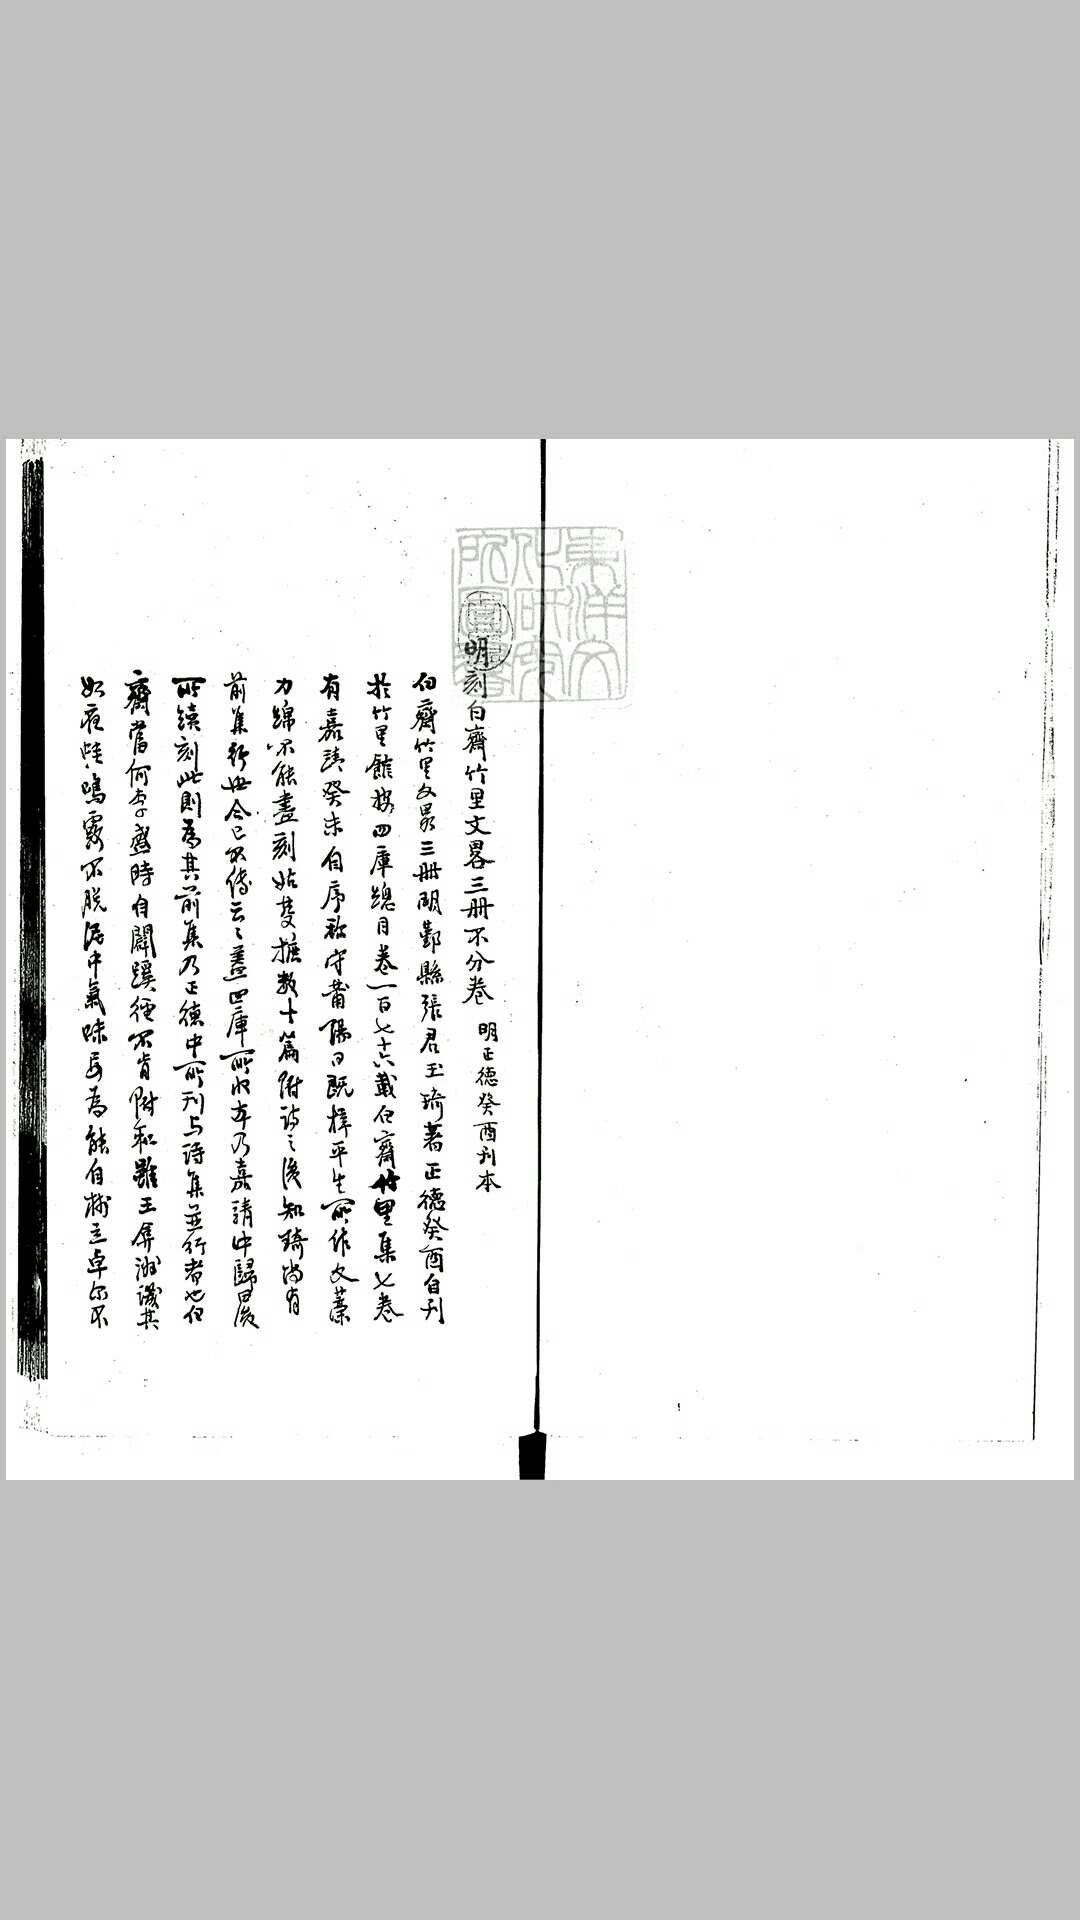 東洋文化研究所圖書
明刻白齋竹里文畧三冊不分卷 明正德癸酉刊本
白齋竹里文畧三冊明鄞縣張君玉琦著正德癸酉自刊
於竹里館按四庫總目卷一百七十六載白齋竹里集七卷
有嘉靖癸未自序称守莆陽日既梓平生所作文藁
力綿不能盡刻姑隻摭数十篇附詩之後知琦尚有
前集行世今已不傳云云蓋四庫所收本乃嘉靖中歸田後
所續刻此則為其前集乃正德中所刊与詩集並行者也白
齋當何李盛時自闢蹊徑不肯附和雖王弇洲譏其
如夜蛙鳴露不脫泥中氣味要為能自樹立卓尔不